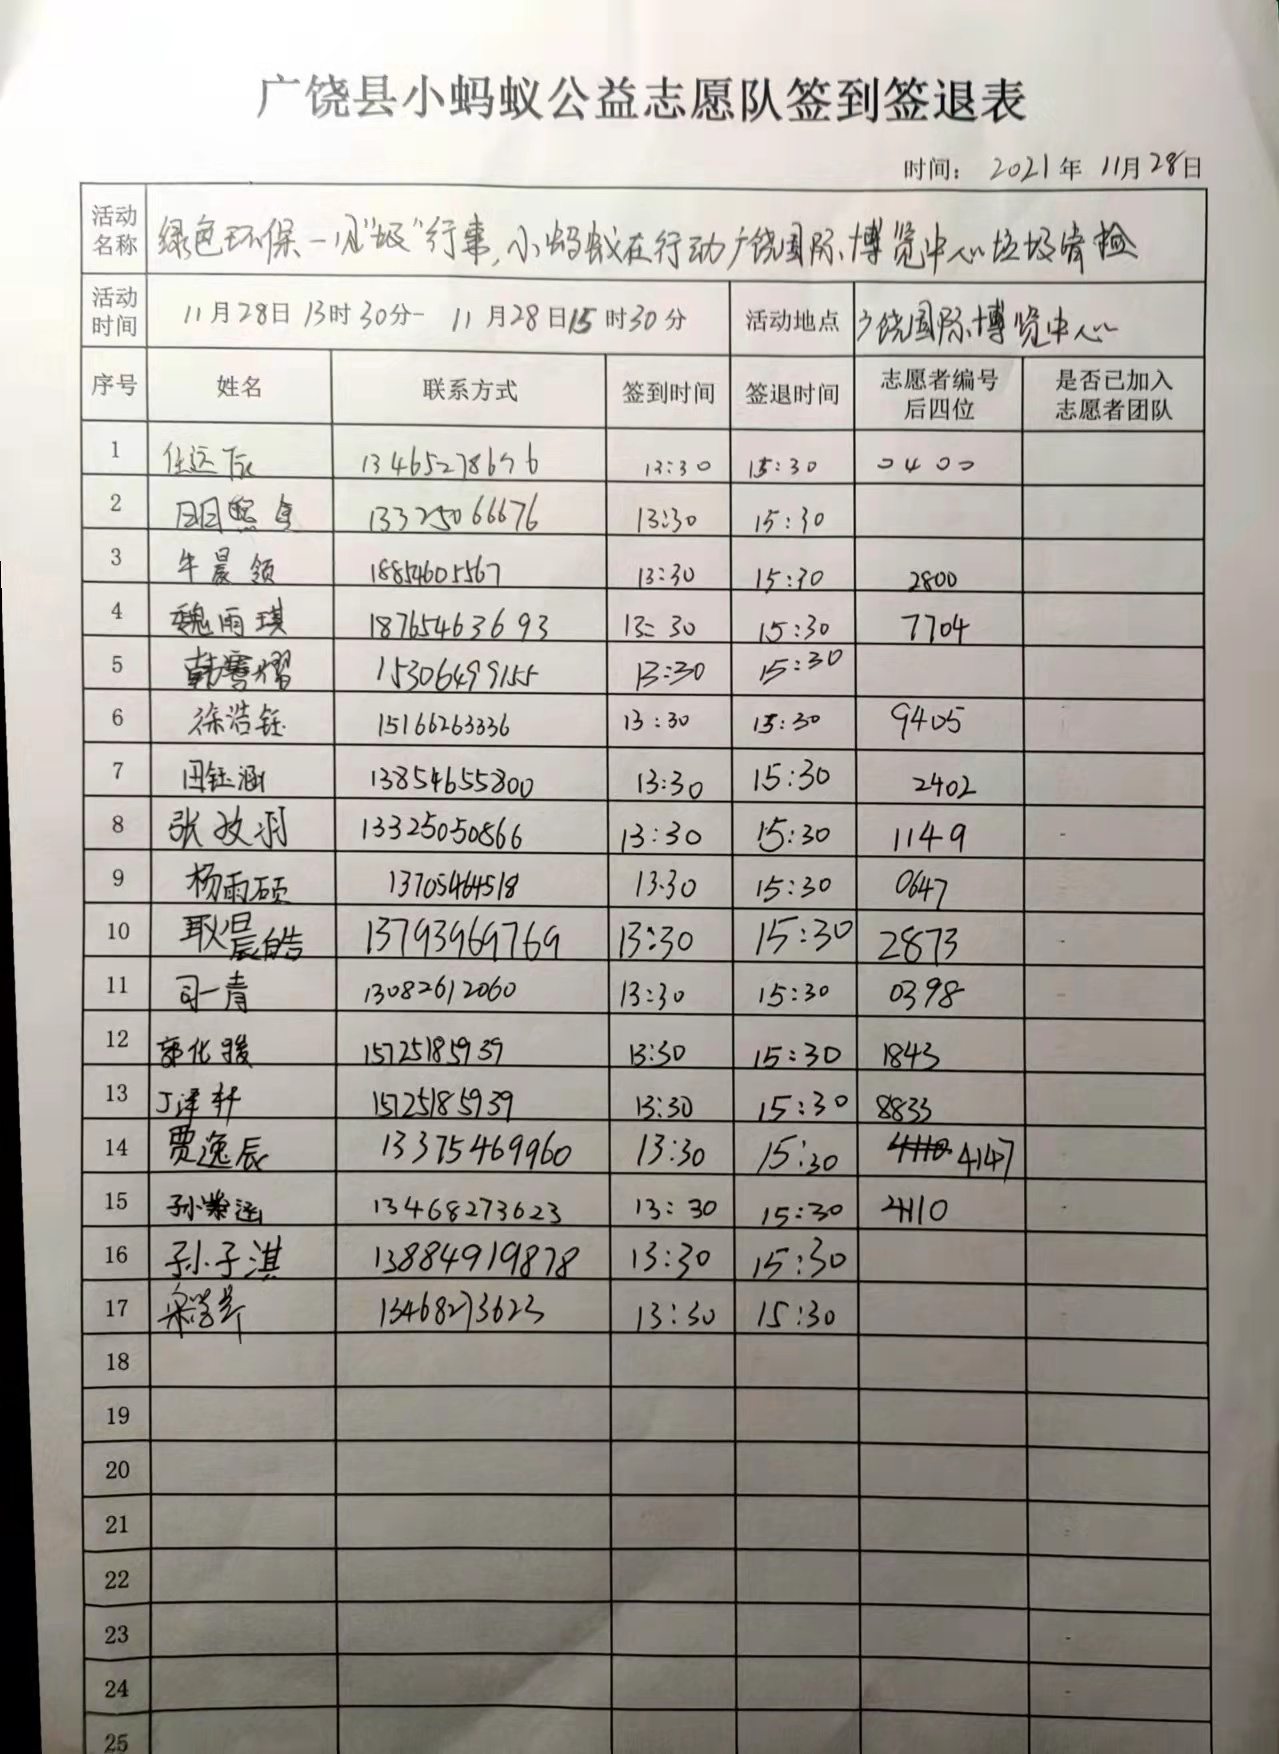 广饶县小蚂蚁公益志愿队签到签退表
时间： 2021年 11月28日
活动名称 绿色环保一见“圾”行事，小蚂蚁在行动广饶国际博览中心垃圾清捡
活动时间 11月28日13时30分- 11月28日15时30分 活动地点 广饶国际博览中心
序号 姓名 联系方式 签到时间 签退时间 志愿者编号后四位 是否已加入志愿者团队
1 任运 13:30 15:30 0400
2 13325066676 13:30 15:30
3 牛晨领 18854605567 13:30 15:30 2800
4 魏雨琪 18765463693 13:30 15:30 7704
5 韩 15306499155 13:30 15:30
6 徐浩钰 15166263336 13:30 15:30 9405
7 田钰涵 13854655800 13:30 15:30 2402
8 张 13325050866 13:30 15:30 1149
9 杨雨硕 13705464518 13:30 15:30 0647
10 耿晨皓 13793969769 13:30 15:30 2873
11 司一青 13082612060 13:30 15:30 0398
12 郭化骏 15725185939 13:30 15:30 1843
13 丁泽轩 15725185939 13:30 15:30 8833
14 贾逸辰 13375469960 13:30 15:30 4147
15 孙 13468273623 13:30 15:30 4110
16 孙子淇 13884919878 13:30 15:30
17 13468273623 13:30 15:30
18
19
20
21
22
23
24
25